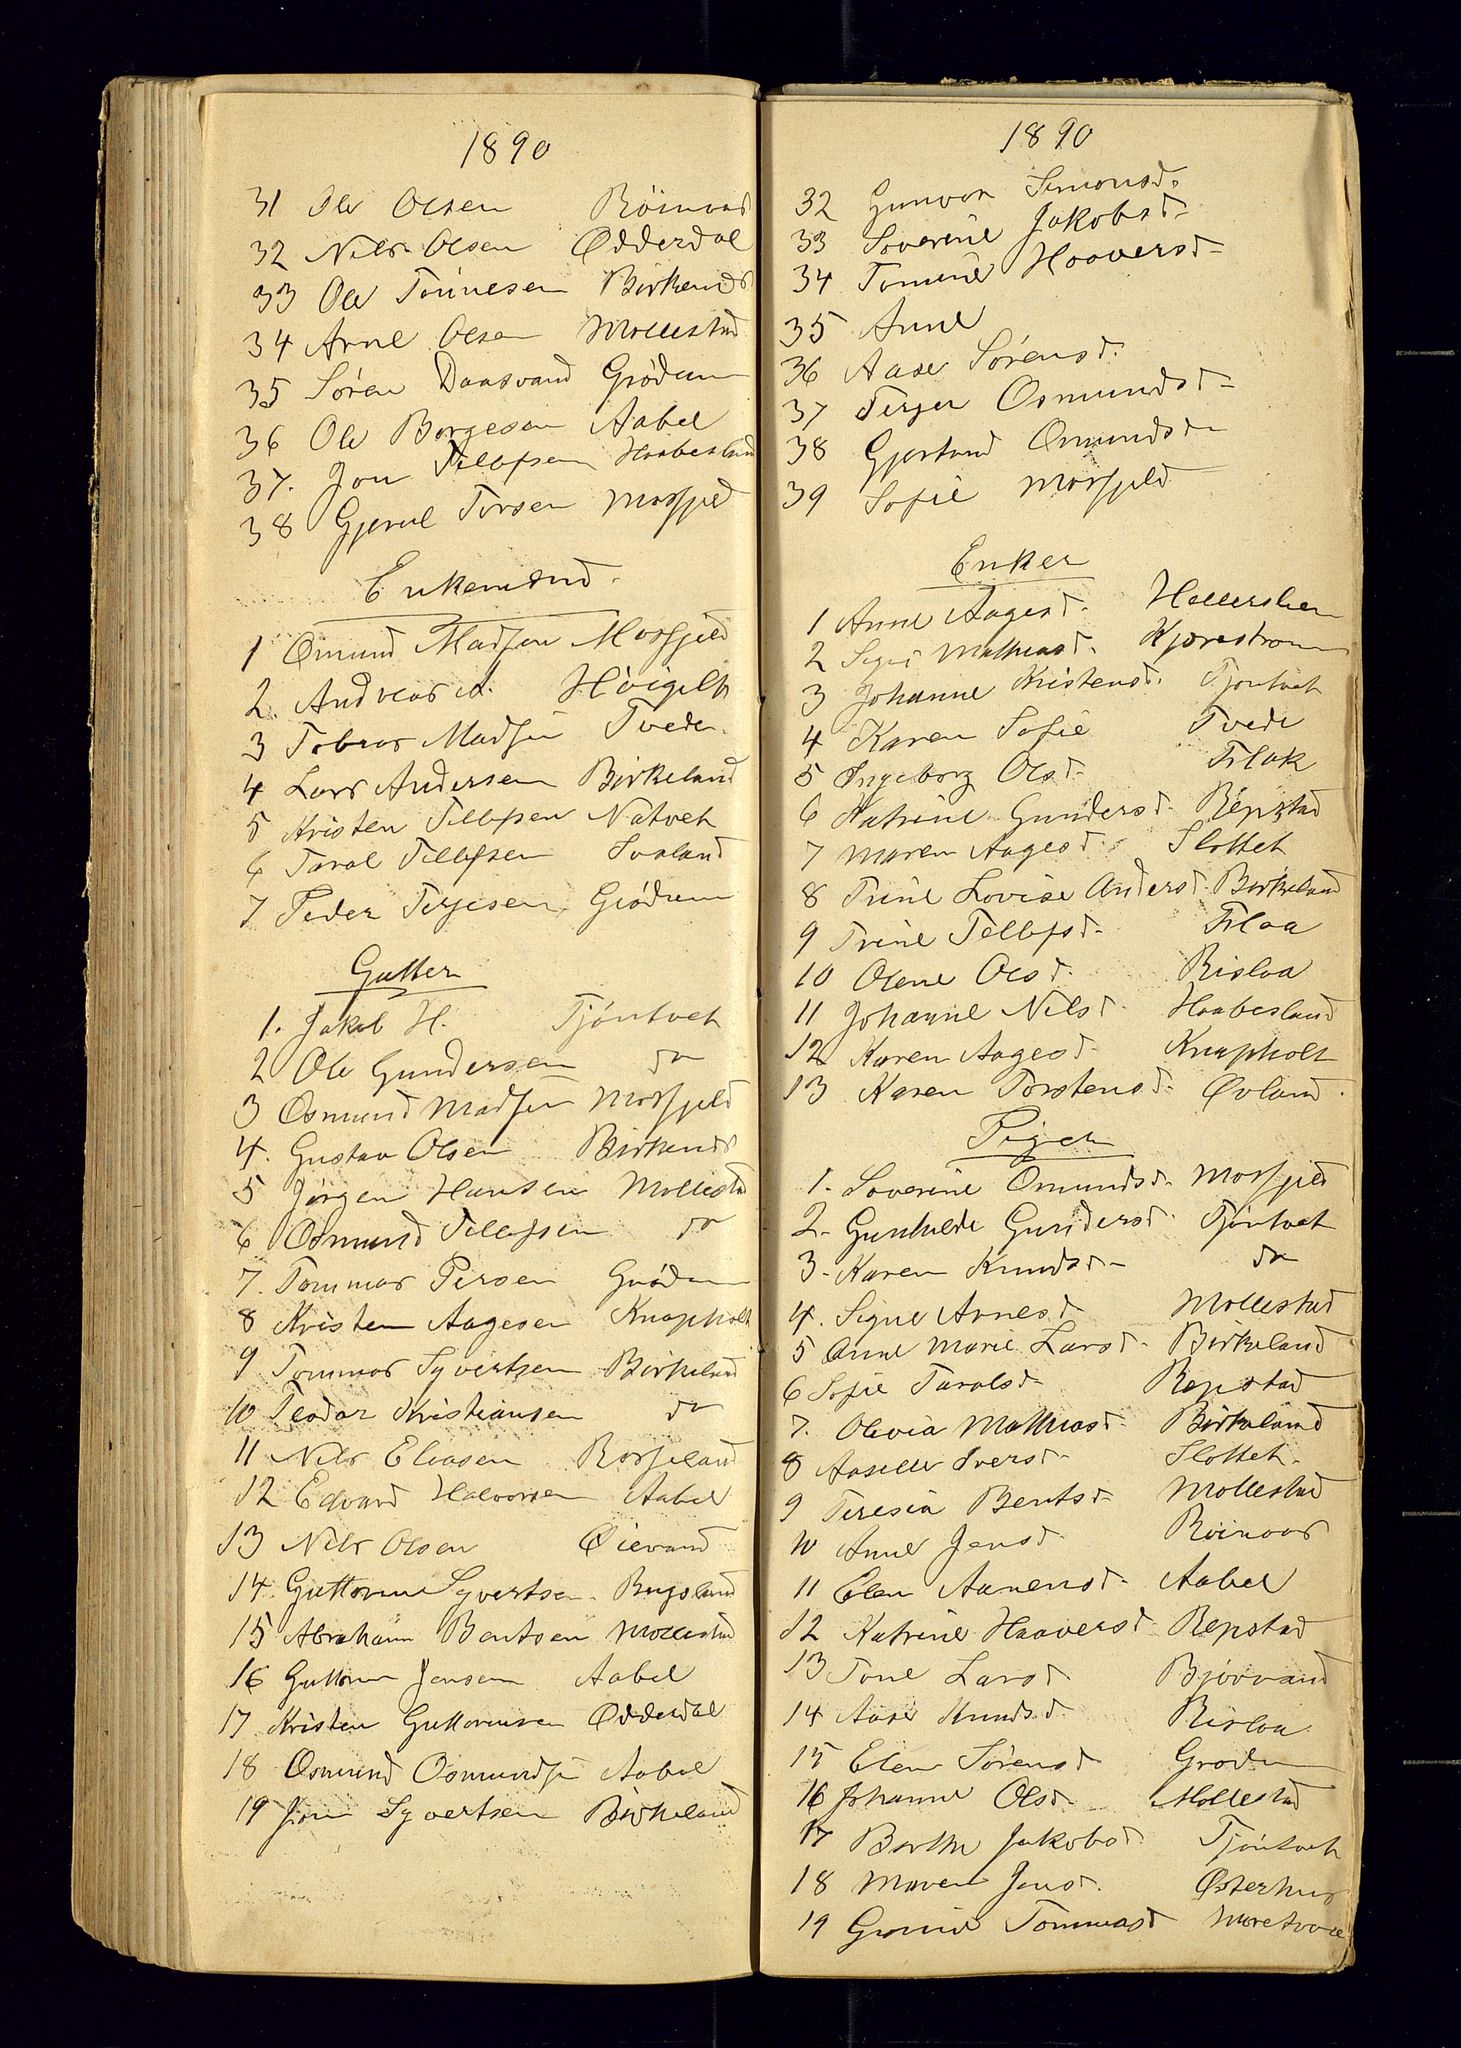 1890
31 Ole Olsen Röinvas
32 Nils Olsen Ødderdal
33 Ole Tönnesen Birkenes
34 Arne Olsen Mollestad
35 Sören Daasvand Grödum
36 Ole Borgesen Aabel
37. Jon Tellefsen Haabesland
38 Gjerul Torsen Mosfjeld
Enkemænd.
1 Omund Madsen Mosfjeld
2. Andreas A. Höigilt
3 Tobias Madsen Tvede.
4 Lars Andersen Birkeland
5 Kristen Tellefsen Natvet
6 Taral Tellefsen Svaland
7 Peder Terjesen Grödum
Gutter
1. Jakob H. Tjöntvet
2 Ole Gundersen do
3 Osmund Madsen Mosfjeld
4. Gustav Olsen Birkenes
5 Jörgen Hansen Mollestad
6 Osmund Tellefsen do
7. Tommas Persen Grödum
8 Kristen Aagesen Knapholt
9 Tommas Syvertsen Birkeland
10 Teodor Kristiansen do
11 Nils Eliasen Rosseland
12 Edvard Halvorsen Aabel
13 Nils Olsen Øievand
14. Guttorm Syvertsen. Rugsland
15 Abraham Bentsen Mollestad
16 Guttorm Jensen Aabel
17 Kristen Guttormsen Ødderdal
18 Osmund Osmundsen Aabel
19 Jon Syvertsen Birkeland
1890
32 Gunvor Simonsd.
33 Soverine Jakobsd.
34 Tomine Haaversd.
35 Anne
36 Aase Sörensd.
37 Terjer Osmundsd.
38 Gjertrud Omundsd.
39 Sofie Mosfjeld
Enker
1 Anne Aagesd. Hellerslien
2 Signe Mathiasd. Kjærestrom
3 Johanne Kristensd. Tjöntvet
4 Karen Sofie Tvede
5 Ingeborg Olsd. Flak
6 Katrine Gundersd. Repstad
7 Maren Aagesd. Slottet
8 Trine Lovise Andersd. Birkeland
9 Trine Tellefsd. Flaa
10 Olene Olsd. Risløa
11 Johanne Nilsd. Haabesland
12 Karen Aagesd. Knapholt
13 Karen Torstensd. Øvland.
Piger
1. Soverine Omundsd. Mosfjeld
2. Gunhilde Gundersd. Tjöntvet
3. Karen Knudsd. do
4. Signe Arnesd. Mollestad
5 Anne Marie Larsd. Birkeland
6 Sofie Taralsd. Repstad
7. Olevia Mathiasd. Birkeland
8 Aaselle Iversd. Slottet.
9 Teresia Bentsd. Mollestad
10 Anne Jensd. Röinaas
11 Elen Aanensd. Aabel
12 Katrine Haaversd Repstad
13 Tone Larsd. Bjorvand
14 Aase Knudsd. Risløa
15 Elen Sörensd. Grödum
16 Johanne Olsd. Mollestad
17 Berthe Jakobsd. Tjöntvet
18 Maren Jensd. Østerhus
19 Gunild Tommasd